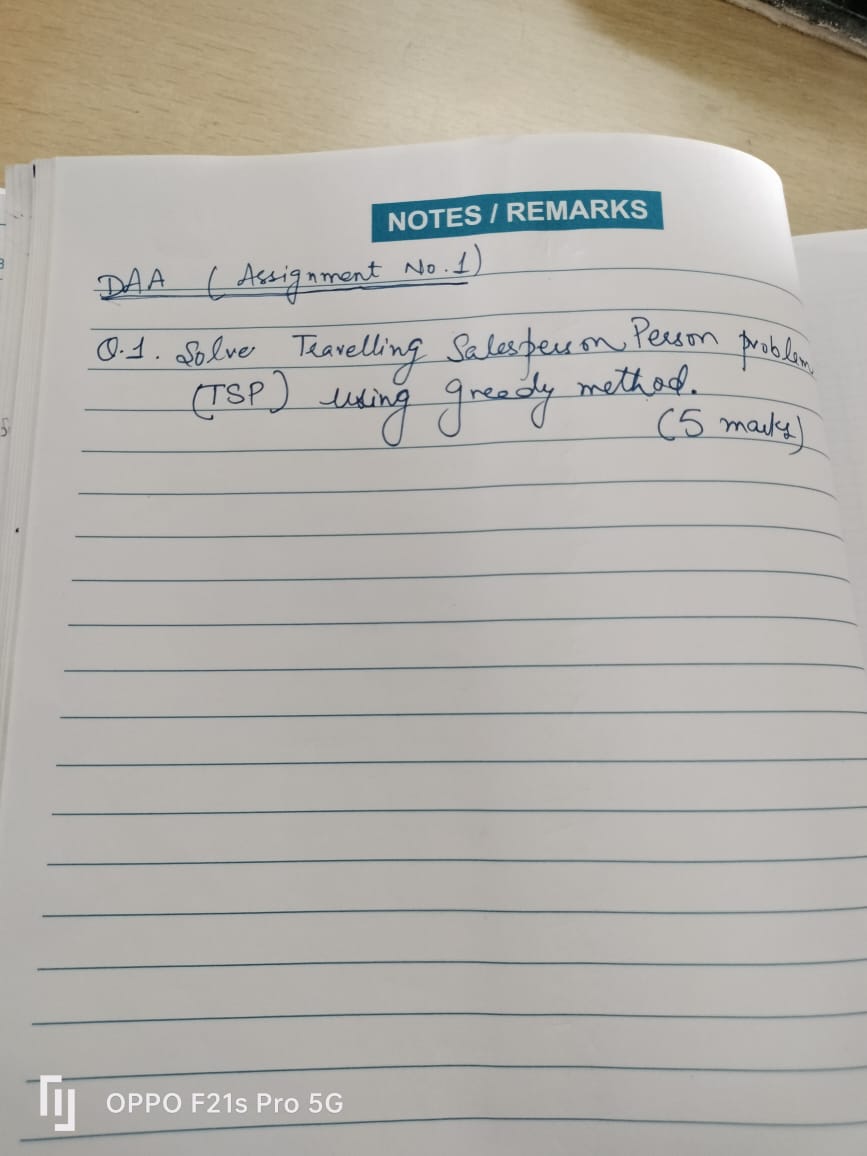 NOTES / REMARKS
DAA (Assignment No. 1)
Q.1. Solve Travelling Salesperson Person problem
(TSP) using greedy method.
(5 marks)
OPPO F21s Pro 5G